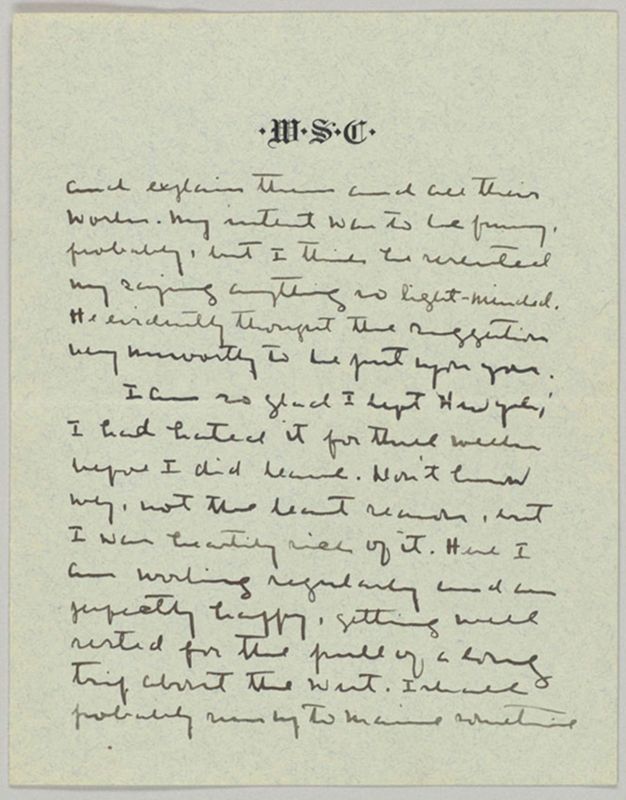 ·W·S·C·
and explain them and all their
works. My intent was to be funny,
probably, but I think he resented
my saying anything so light-minded.
He evidently thought the suggestion
very unworthy to be put upon you.
I am so glad I left New York,
I had hated it for three weeks
before I did leave. Don't know
why, not the least reason, but
I was heartily sick of it. Here I
am working regularly and am
perfectly happy, getting well
rested for the pull of a long
trip about the West. I shall
probably run up to Maine sometime